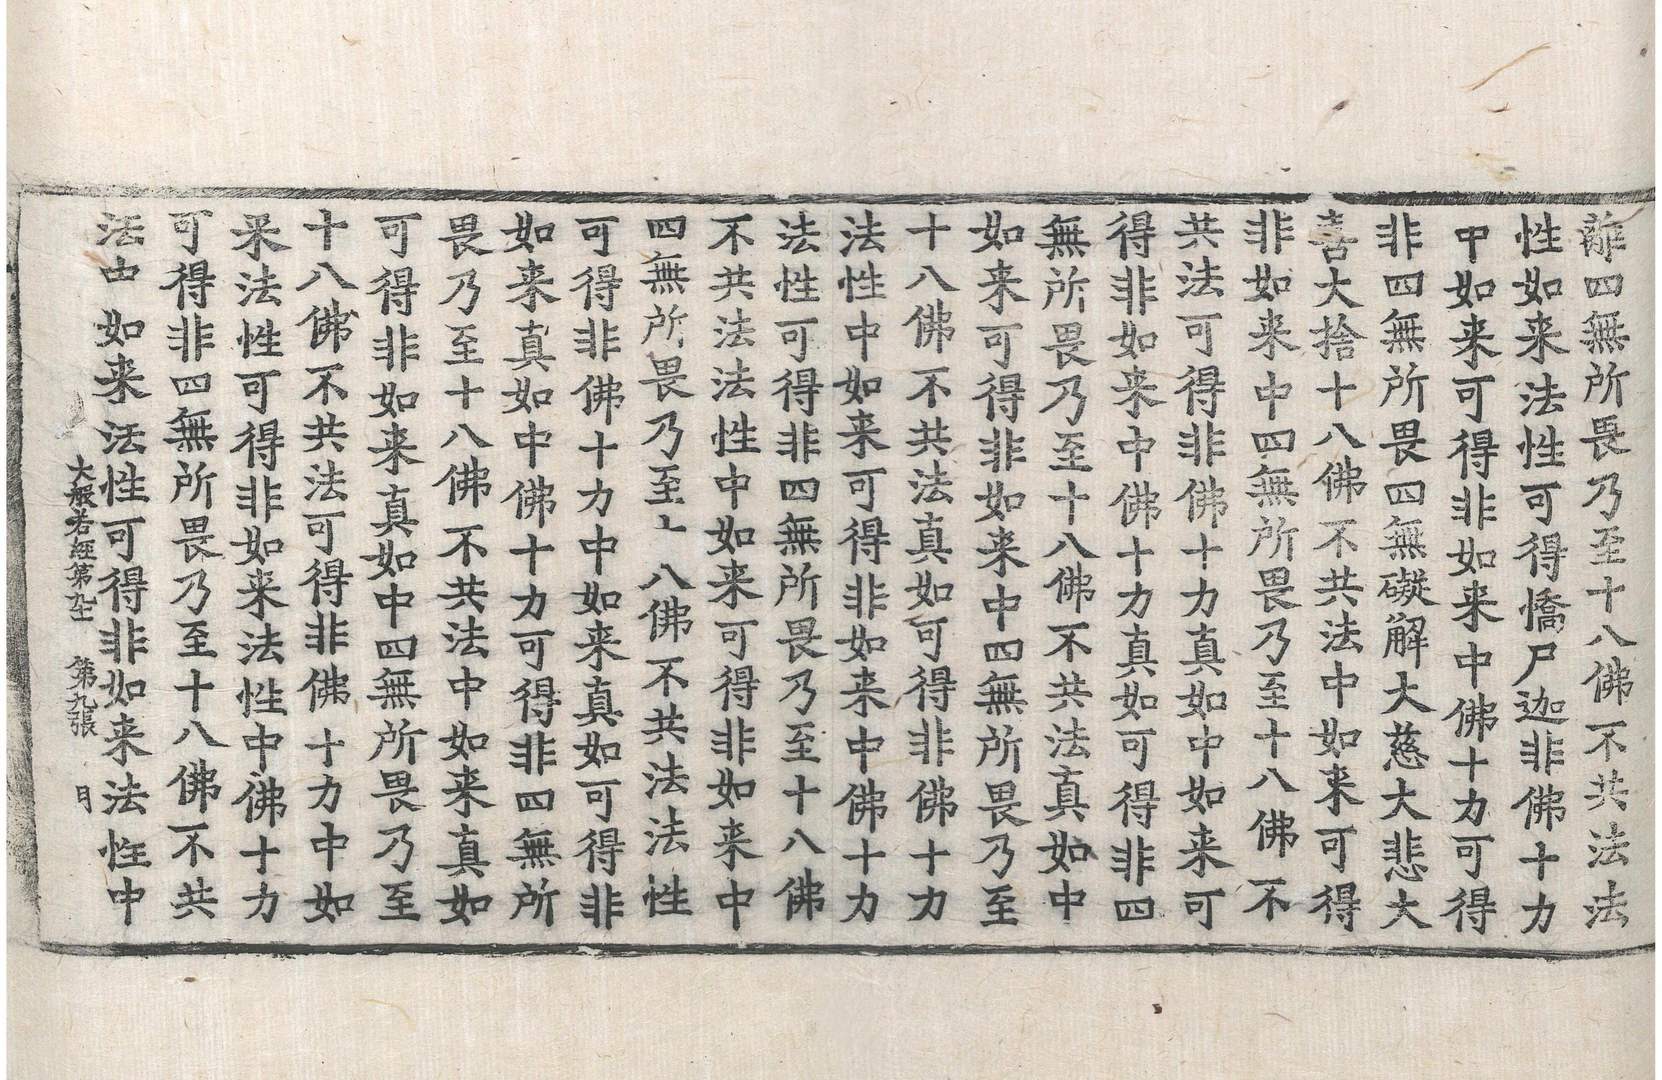 離四無所畏乃至十八佛不共法法
性如来法性可得憍尸迦非佛十力
中如来可得非如来中佛十力可得
非四無所畏四無礙解大慈大悲大
喜大捨十八佛不共法中如来可得
非如来中四無所畏乃至十八佛不
共法可得非佛十力真如中如来可
得非如来中佛十力真如可得非四
無所畏乃至十八佛不共法真如中
如来可得非如来中四無所畏乃至
十八佛不共法真如可得非佛十力
法性中如来可得非如来中佛十力
法性可得非四無所畏乃至十八佛
不共法法性中如来可得非如来中
四無所畏乃至十八佛不共法法性
可得非佛十力中如来真如可得非
如来真如中佛十力可得非四無所
畏乃至十八佛不共法中如来真如
可得非如来真如中四無所畏乃至
十八佛不共法可得非佛十力中如
来法性可得非如来法性中佛十力
可得非四無所畏乃至十八佛不共
法中如来法性可得非如来法性中
大般若經第九十 第九張 月